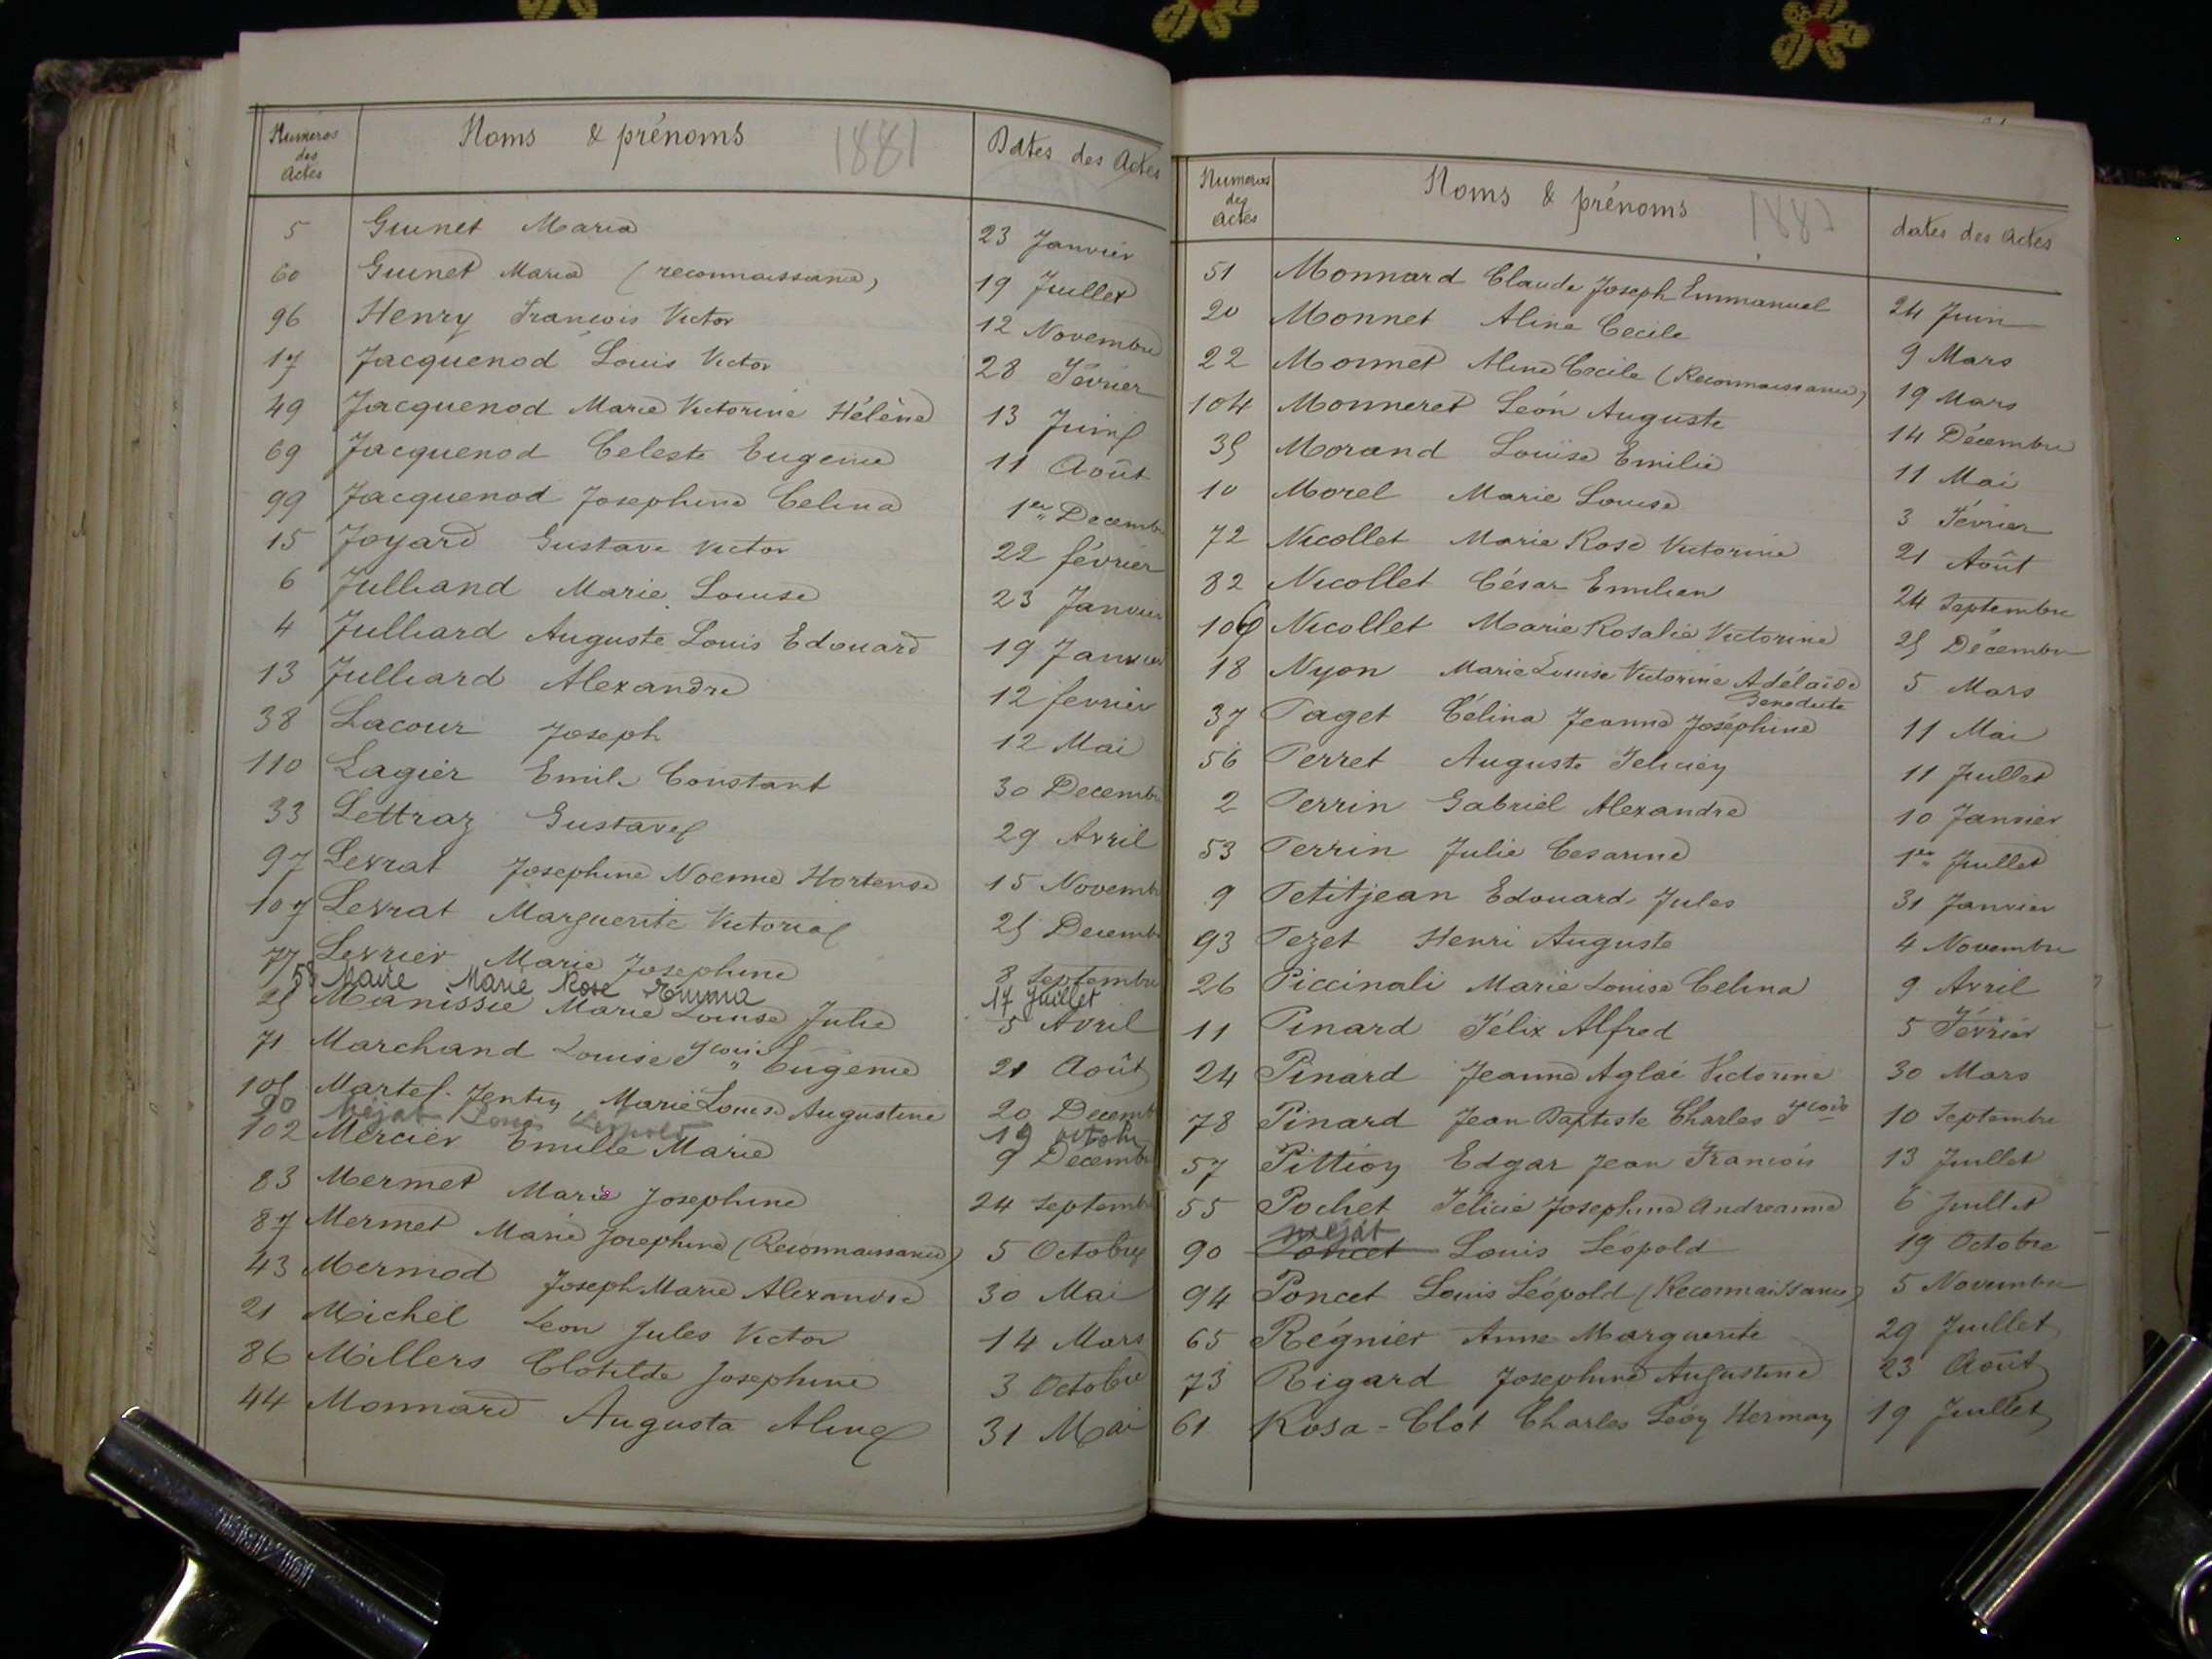 Numeros des Actes Noms & prénoms 1881 Dates des Actes
5 Guinet Maria 23 Janvier
60 Guinet Maria (reconnaissance) 19 Juillet
96 Henry François Victor 12 Novembre
17 Jacquenod Louis Victor 28 Février
49 Jacquenod Marie Victorine Hélène 13 Juin
69 Jacquenod Celeste Eugenie 11 Août
99 Jacquenod Josephine Celina 1er Decembre
15 Joyard Gustave Victor 22 février
6 Julliand Marie Louise 23 Janvier
4 Julliard Auguste Louis Edouard 19 Janvier
13 Julliard Alexandre 12 fevrier
38 Lacour Joseph 12 Mai
110 Lagier Emile Constant 30 Decembre
33 Lettraz Gustave 29 Avril
97 Levrat Josephine Noemie Hortense 15 Novemb
107 Levrat Marguerite Victoria 25 Decemb
77 Levrier Marie Josephine 8 Septembre
58 Maire Marie Rose Emma 17 Juillet
25 Manissie Marie Louise Julie 5 Avril
71 Marchand Louise Fcoise Eugénie 21 Août
105 Martel-Jentin Marie Louise Augustine 20 Decemb
90 Méjat Louis Léopold 19 octobre
102 Mercier Emilie Marie 9 Decembre
83 Mermet Marie Josephine 24 Septemb
87 Mermet Marie Josephine (Reconnaissance) 5 Octobre
43 Mermod Joseph Marie Alexandre 30 Mai
21 Michel Leon Jules Victor 14 Mars
86 Millers Clotilde Josephine 3 Octobre
44 Monnard Augusta Aline 31 Mai
Numeros des Actes Noms & prénoms 1881 dates des Actes
51 Monnard Claude Joseph Emmanuel 24 Juin
20 Monnet Aline Cecile 9 Mars
22 Monnet Aline Cecile (Reconnaissance) 19 Mars
104 Monneret Léon Auguste 14 Décembre
35 Morand Louise Emilie 11 Mai
10 Morel Marie Louise 3 Février
72 Nicollet Marie Rose Victorine 21 Août
82 Nicollet César Emilien 24 Septembre
106 Nicollet Marie Rosalie Victorine 25 Décembre
18 Nyon Marie Louise Victorine Adélaïde Benedicte 5 Mars
37 Paget Célina Jeanne Joséphine 11 Mai
56 Perret Auguste Felicien 11 Juillet
2 Perrin Gabriel Alexandre 10 Janvier
53 Perrin Julie Cesarine 1er Juillet
9 Petitjean Edouard Jules 31 Janvier
93 Pezet Henri Auguste 4 Novembre
26 Piccinali Marie Louise Celina 9 Avril
11 Pinard Félix Alfred 5 Février
24 Pinard Jeanne Aglaé Victorine 30 Mars
78 Pinard Jean Baptiste Charles Fcois 10 Septembre
57 Pittion Edgar Jean François 13 Juillet
55 Pochet Félicie Josephine Andreanne 6 Juillet
méjat
90 Poncet Louis Léopold 19 Octobre
94 Poncet Louis Léopold (Reconnaissance) 5 Novembre
65 Régnier Anne Marguerite 29 Juillet
73 Rigard Josephine Augustine 23 Août
61 Rosa-Clot Charles Léon Herman 19 Juillet